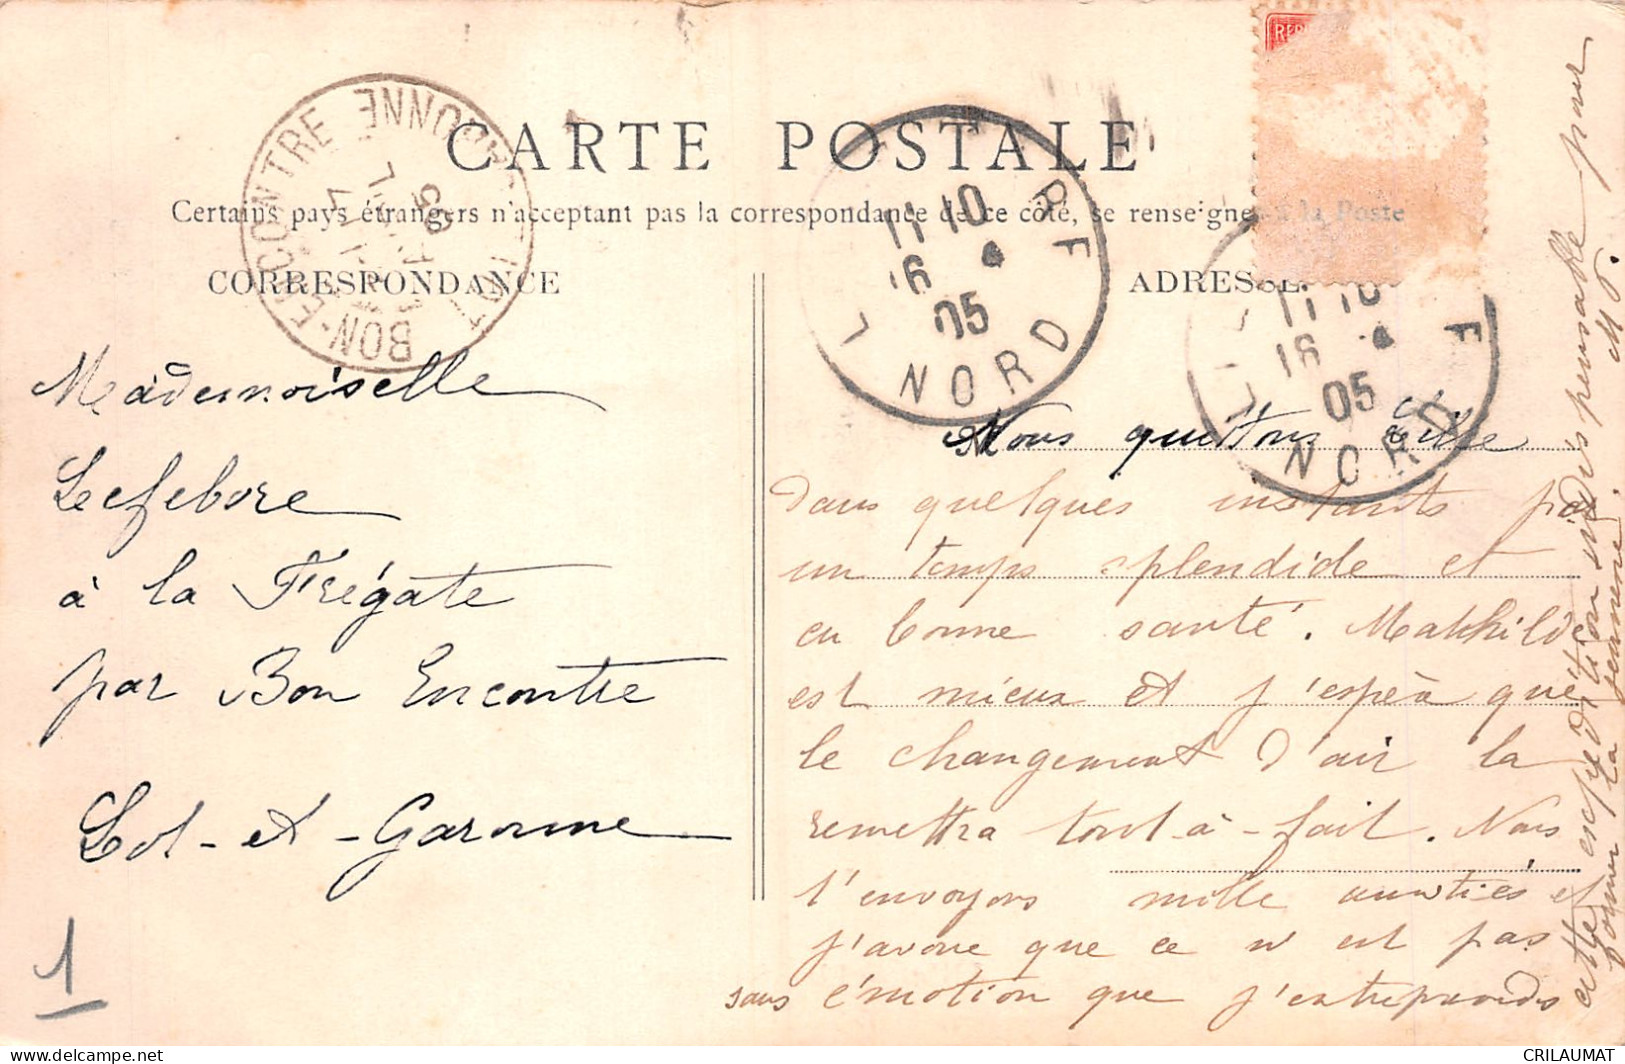 CARTE POSTALE
Certains pays étrangers n'acceptent pas la correspondance de ce côté, se renseigner à la Poste
CORRESPONDANCE
ADRESSE
BON-ENCONTRE
NORD
11 10
16 4
05
NORD
11 10
16 4
05
Mademoiselle
Lefebvre
à la Frégate
par Bon Encontre
Lot-et-Garonne
1
Nous quittons Lille
dans quelques instants par
un temps splendide et
en bonne santé. Mathilde
est mieux et j'espère que
le changement d'air la
remettra tout-à-fait. Nous
t'envoyons mille amitiés et
j'avoue que ce n'est pas
sans émotion que j'entreprends
cette expédition indispensable pour
la
CRILAUMAT